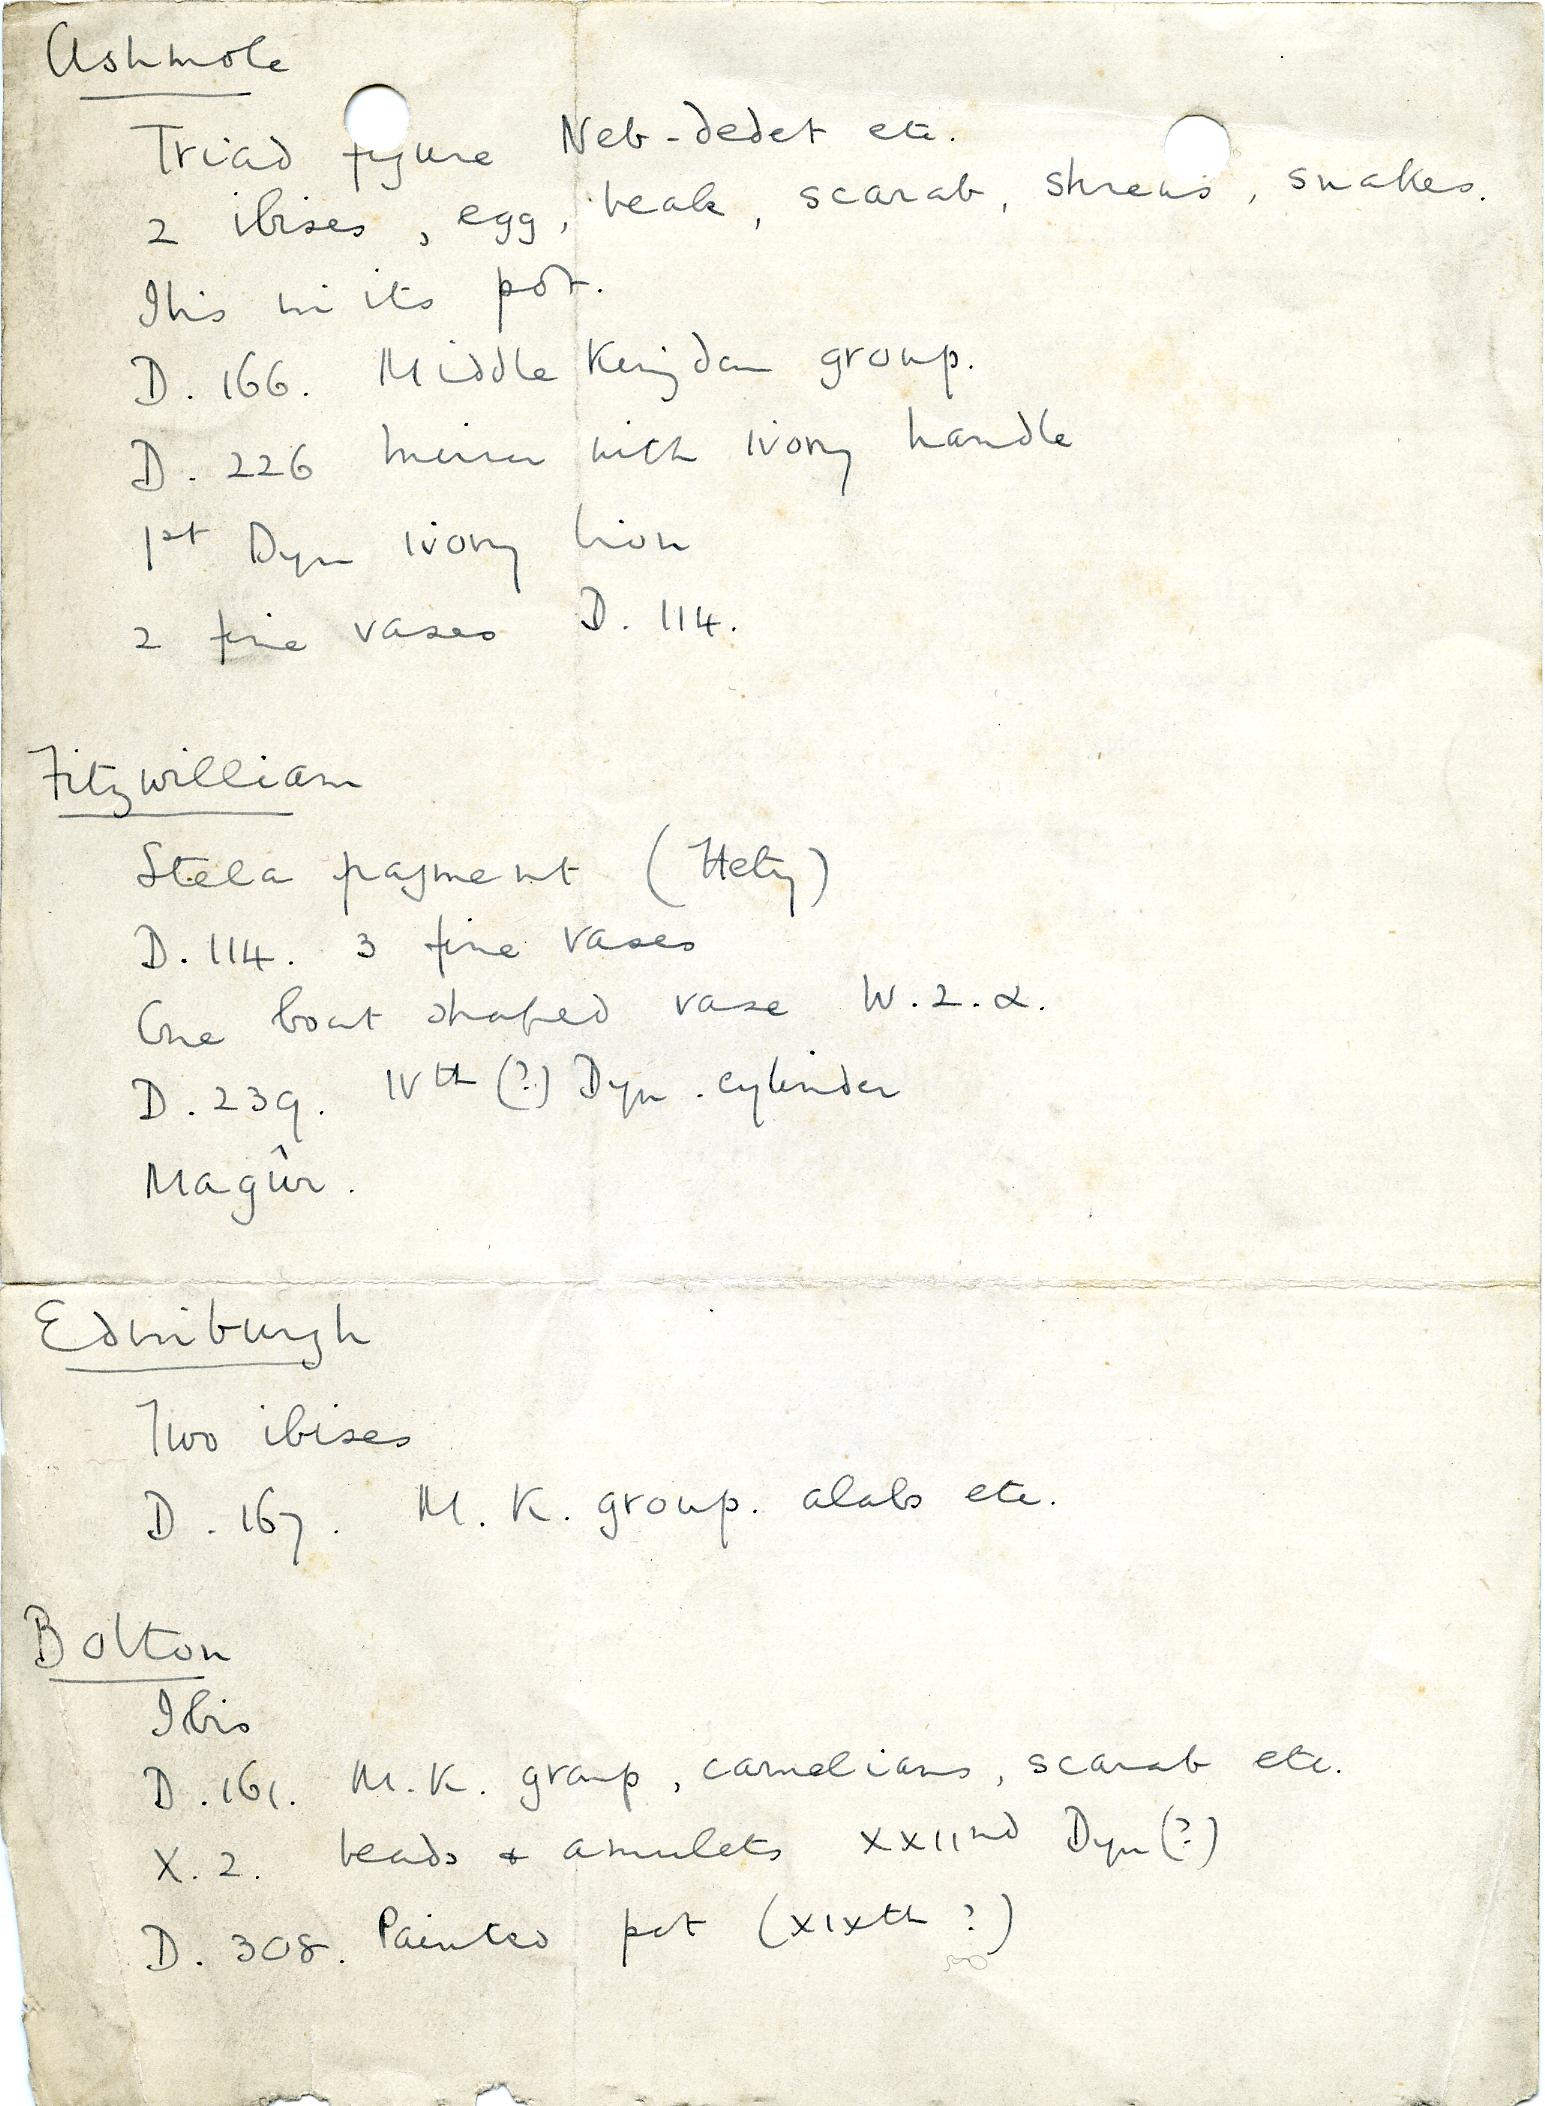 Ashmole
Triad figure Neb-dedet etc.
2 ibises, egg, beak, scarab, shrews, snakes.
Ibis in its pot.
D. 166. Middle Kingdom group.
D. 226 mirror with ivory handle
1st Dyn ivory lion
2 fine vases D. 114.
Fitzwilliam
Stela fragment (Hety)
D. 114. 3 fine vases
One boat shaped vase W.2.α.
D. 239. IVth (?) Dyn. cylinder
Magûr.
Edinburgh
Two ibises
D. 167. M.K. group. alabs etc.
Bolton
Ibis
D. 161. M.K. group, carnelians, scarab etc.
X.2. beads & amulets XXIInd Dyn (?)
D. 308. Painted pot (XIXth ?)